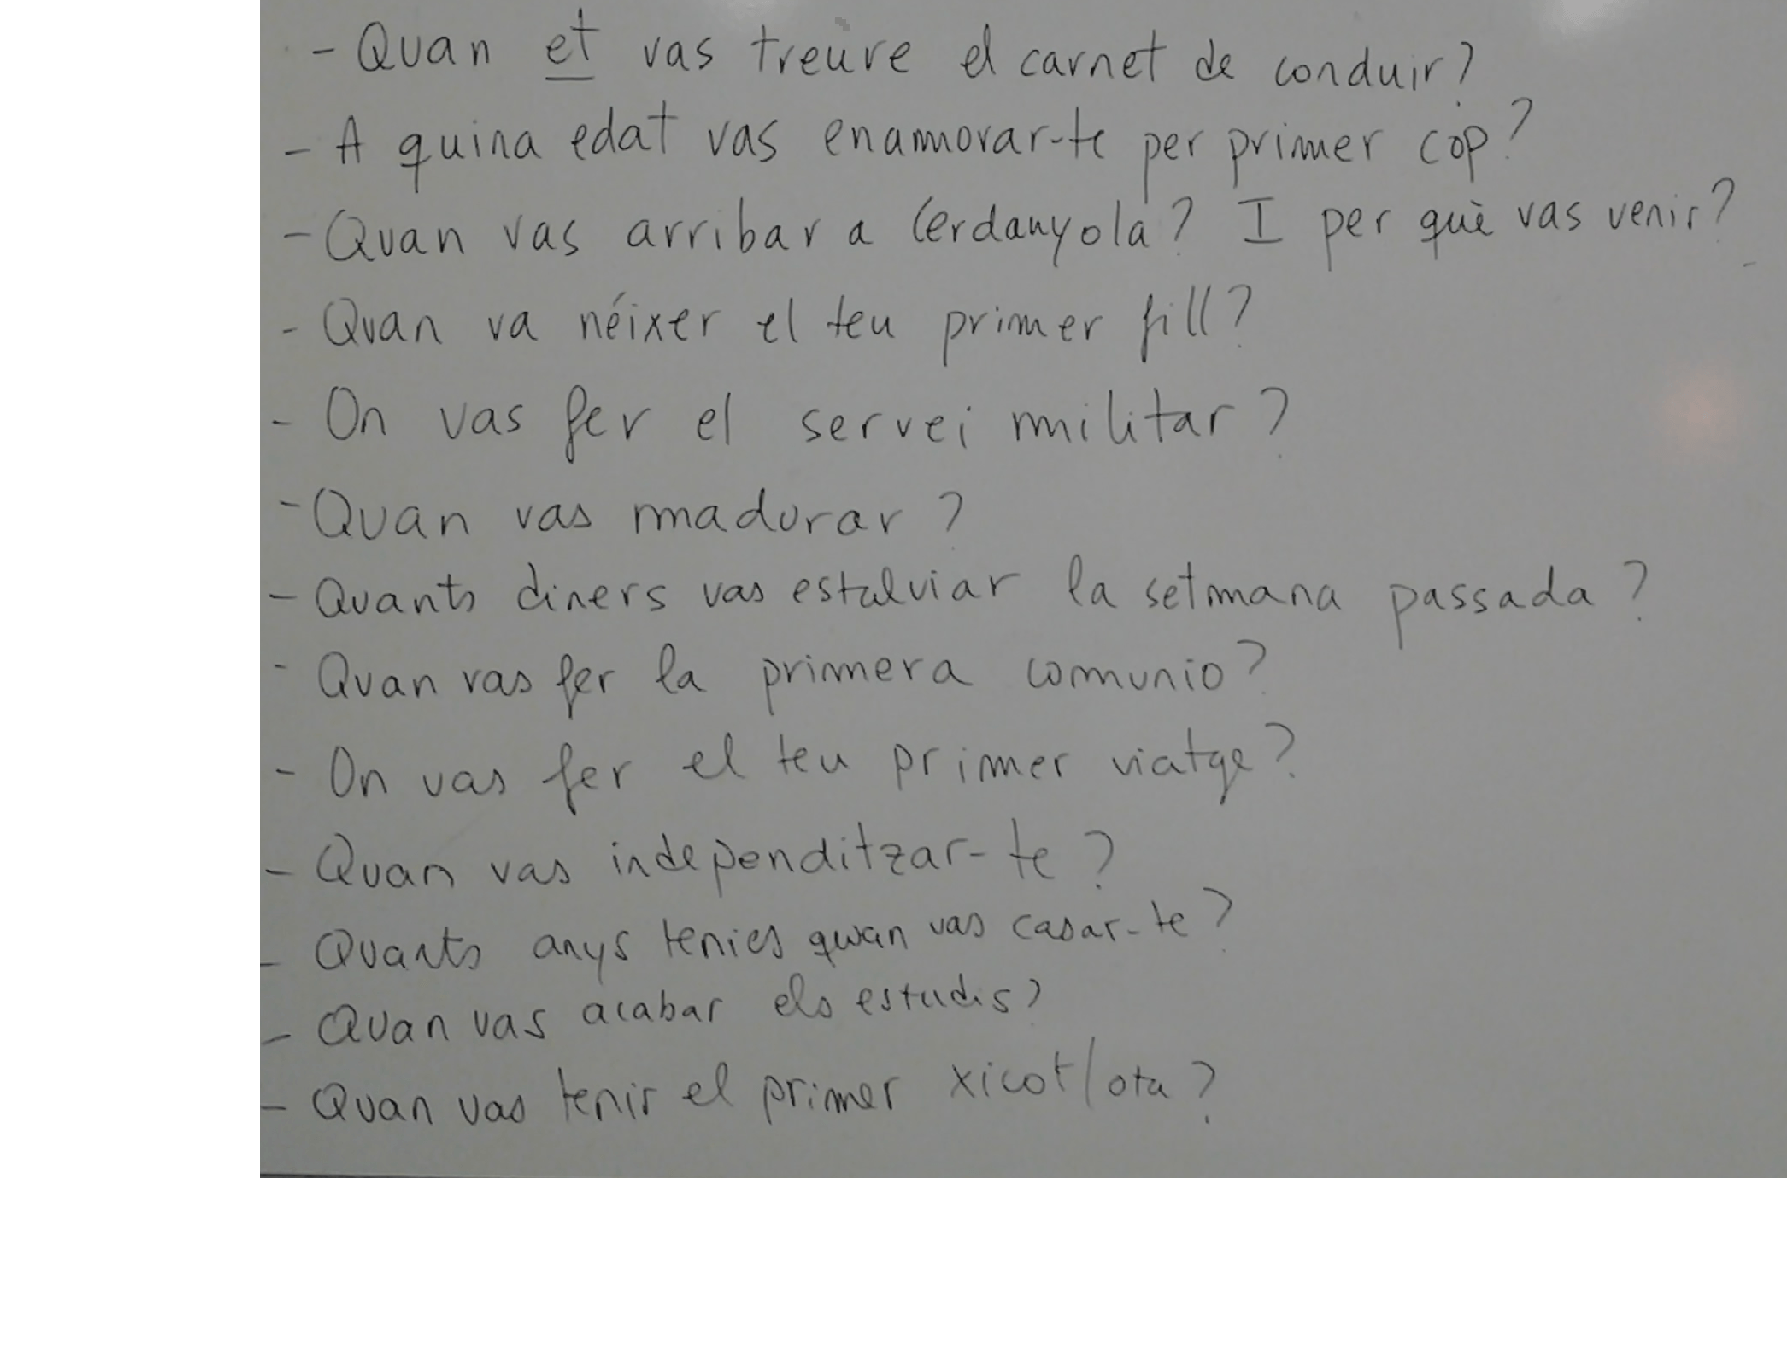 - Quan et vas treure el carnet de conduir?
- A quina edat vas enamorar-te per primer cop?
- Quan vas arribar a Cerdanyola? I per què vas venir?
- Quan va néixer el teu primer fill?
- On vas fer el servei militar?
- Quan vas madurar?
- Quants diners vas estalviar la setmana passada?
- Quan vas fer la primera comunio?
- On vas fer el teu primer viatge?
- Quan vas independitzar-te?
- Quants anys tenies quan vas casar-te?
- Quan vas acabar els estudis?
- Quan vas tenir el primer xicot/ota?